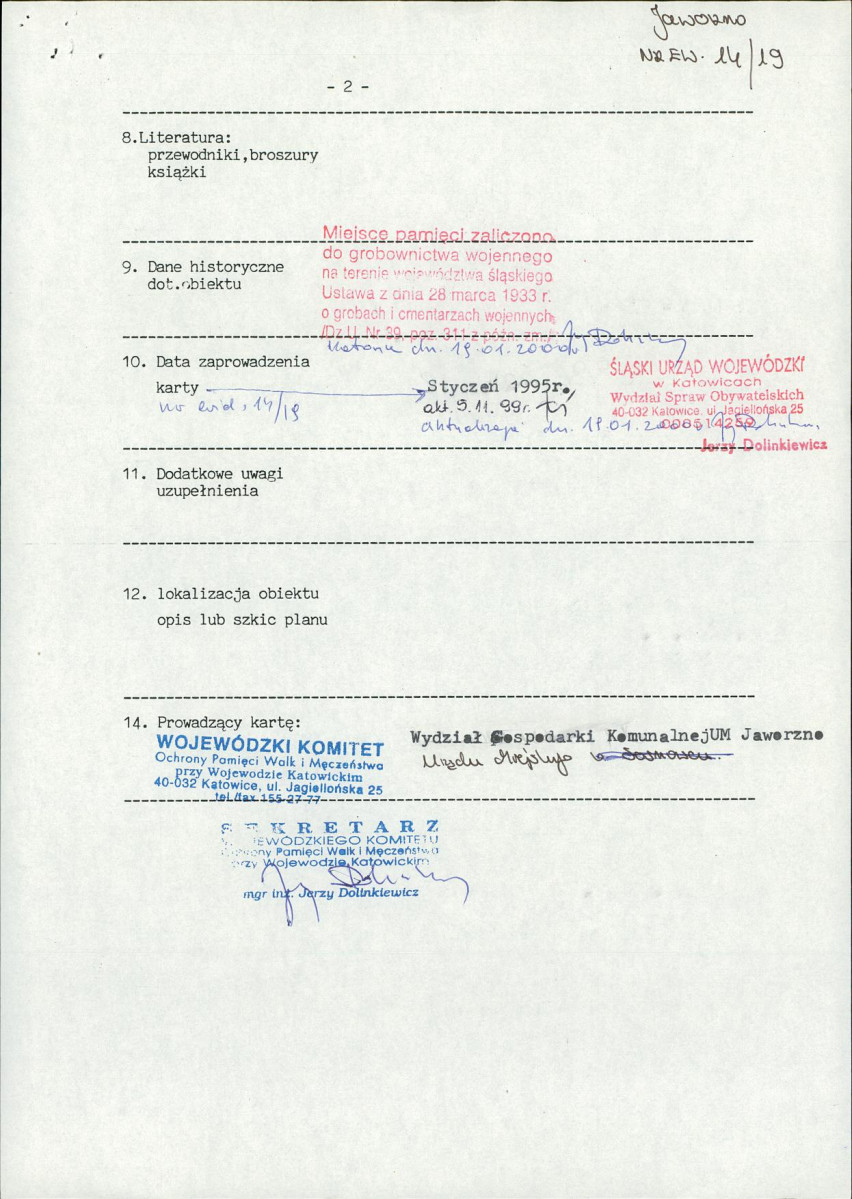 Jaworzno
NR EW. 14/19
- 2 -
8.Literatura:
przewodniki,broszury
książki
Miejsce pamięci zaliczono
do grobownictwa wojennego
na terenie województwa śląskiego
Ustawa z dnia 28 marca 1933 r.
o grobach i cmentarzach wojennych
/Dz.U. Nr 39, poz. 311 z późn. zm./
9. Dane historyczne
dot.obiektu
Katowice dn. 19.01.2000r
10. Data zaprowadzenia
karty
Styczeń 1995r.
nr ewid. 14/19
akt. 5.11.99r.
aktualizacja dn. 19.01.2000
ŚLĄSKI URZĄD WOJEWÓDZKI
w Katowicach
Wydział Spraw Obywatelskich
40-032 Katowice, ul. Jagiellońska 25
000514259
Jerzy Dolinkiewicz
11. Dodatkowe uwagi
uzupełnienia
12. lokalizacja obiektu
opis lub szkic planu
14. Prowadzący kartę:
WOJEWÓDZKI KOMITET
Ochrony Pamięci Walk i Męczeństwa
przy Wojewodzie Katowickim
40-032 Katowice, ul. Jagiellońska 25
tel./fax 155-27-77
Wydział Gospodarki KomunalnejUM Jaworzno
Urzędu Miejskiego
SEKRETARZ
WOJEWÓDZKIEGO KOMITETU
Ochrony Pamięci Walk i Męczeństwa
przy Wojewodzie Katowickim
mgr inż. Jerzy Dolinkiewicz